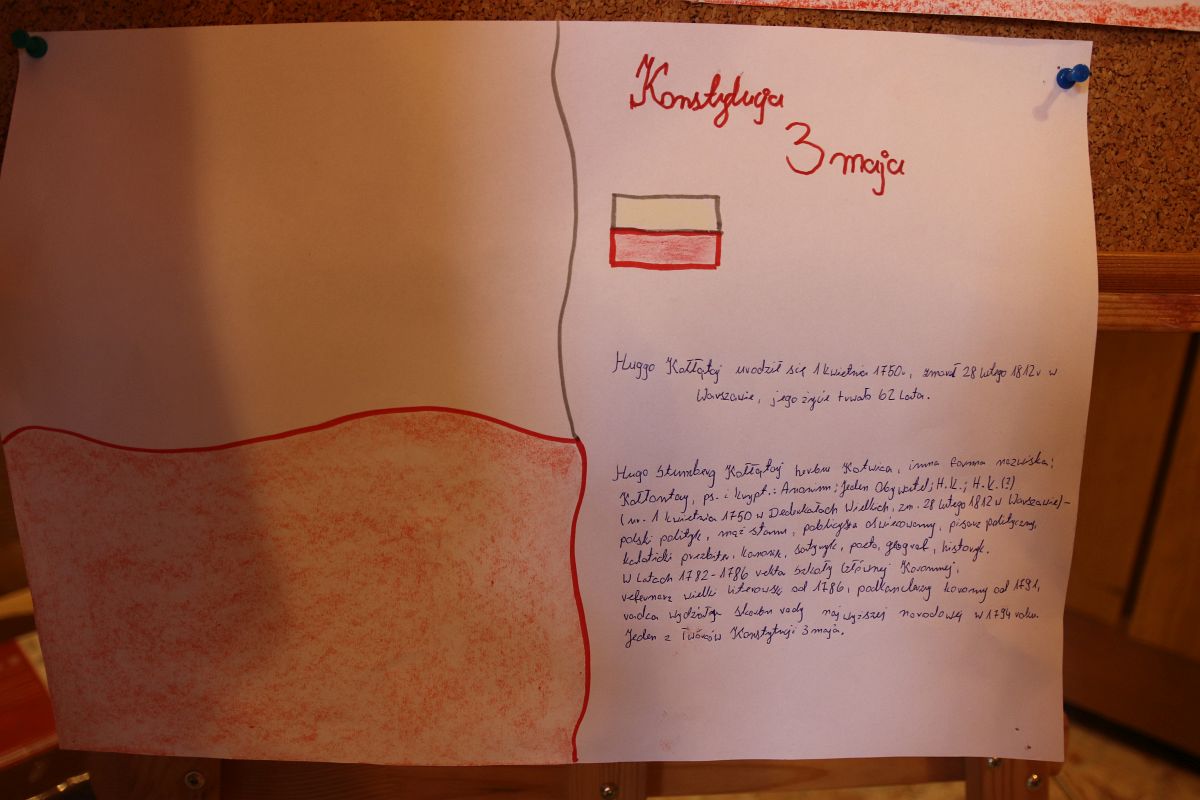 Konstytucja
3 maja
Huggo Kołłątaj urodził się 1 kwietnia 1750r, zmarł 28 lutego 1812r w
Warszawie, jego życie trwało 62 lata.
Hugo Stumberg Kołłątaj herbu Kotwica, inna forma nazwiska:
Kołłontay, ps. i krypt.: Anonim; Jeden Obywatel; H.K.; H.K.(?)
(ur. 1 kwietnia 1750 w Dederkałach Wielkich, zm. 28 lutego 1812 w Warszawie) –
polski polityk, mąż stanu, publicysta oświeceniowy, pisarz polityczny,
katolicki prezbiter, kanonik, satyryk, poeta, geograf, historyk.
W latach 1782-1786 rektor Szkoły Głównej Koronnej,
referendarz wielki litewski od 1786, podkanclerzy koronny od 1791,
radca wydziału skarbu rady najwyższej narodowej w 1794 roku.
Jeden z Twórców Konstytucji 3 maja.